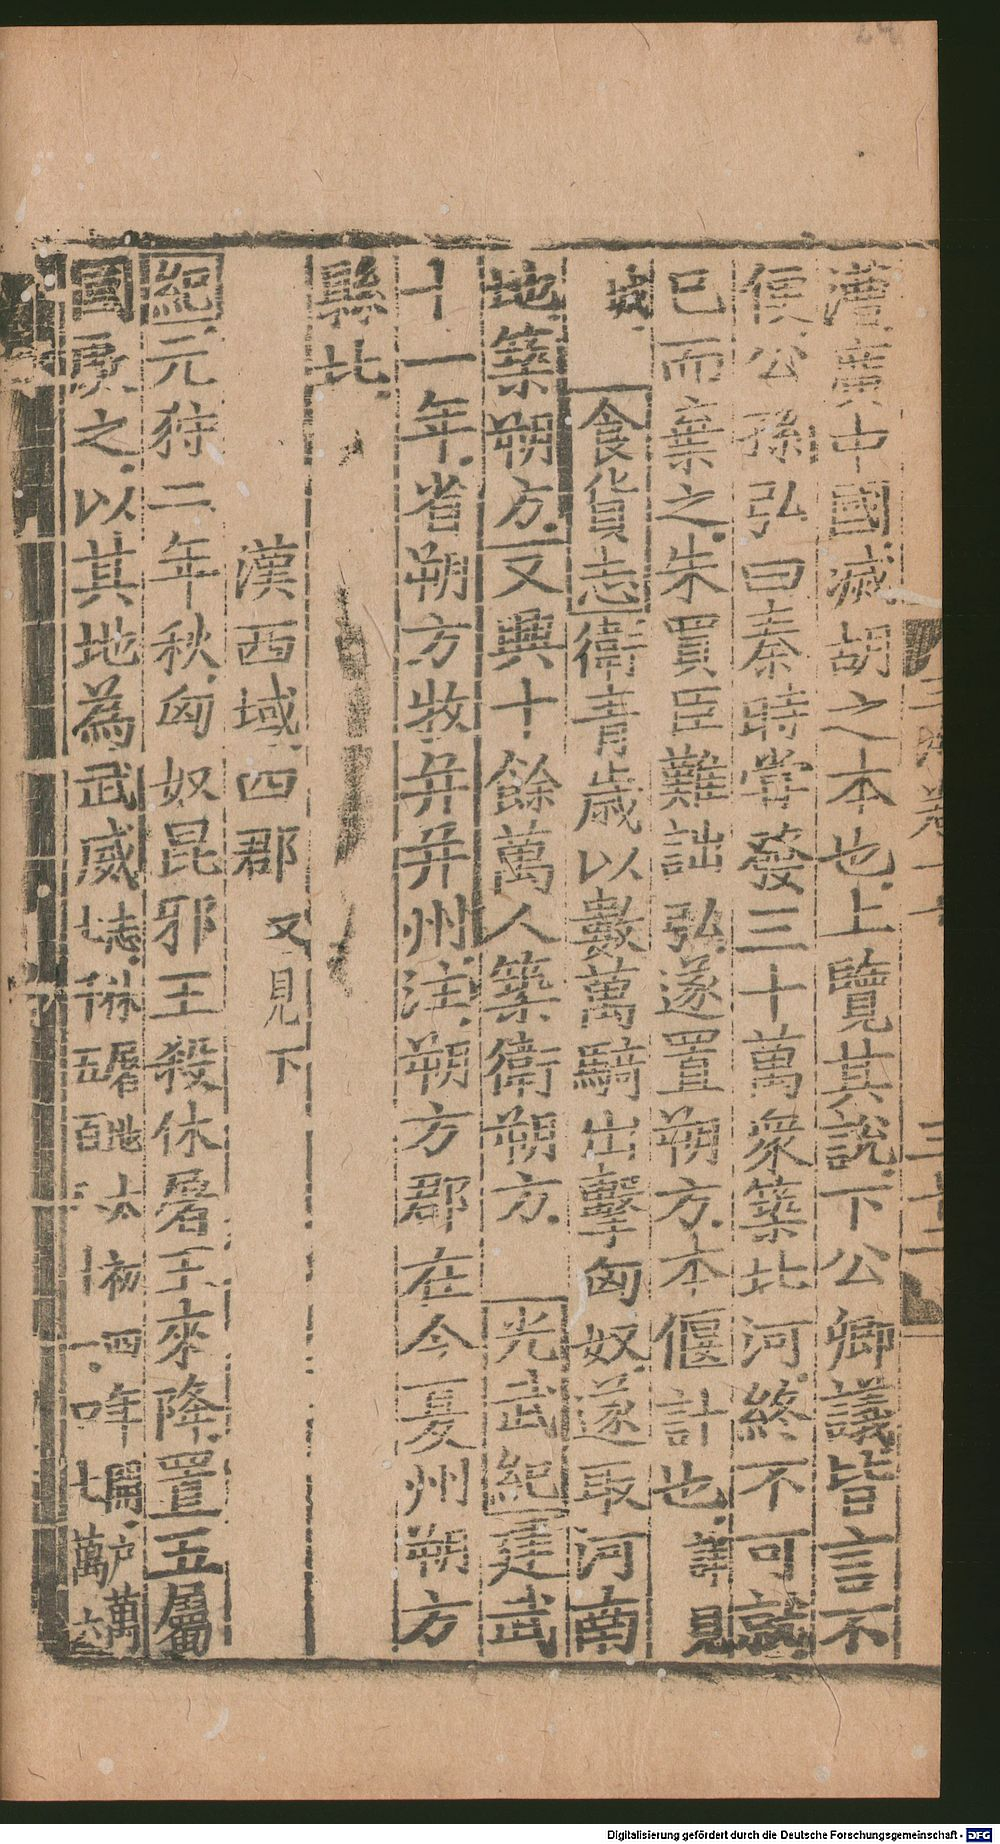 漕廣中國滅胡之本也上覽其說下公卿議皆言不
便公孫弘曰秦時嘗發三十萬衆築北河終不可就
已而棄之朱買臣難詘弘遂置朔方本偃計也詳見
城食貨志衛青歲以數萬騎出擊匈奴遂取河南
地築朔方又興十餘萬人築衛朔方光武紀建武
十一年省朔方牧并并州注朔方郡在今夏州朔方
縣北
漢西域四郡又見下
紀元狩二年秋匈奴昆邪王殺休屠王來降置五屬
國處之以其地為武威志
太初四年開戶萬
七千五百八十一口七萬六
三十二
Digitalisierung gefördert durch die Deutsche Forschungsgemeinschaft - DFG